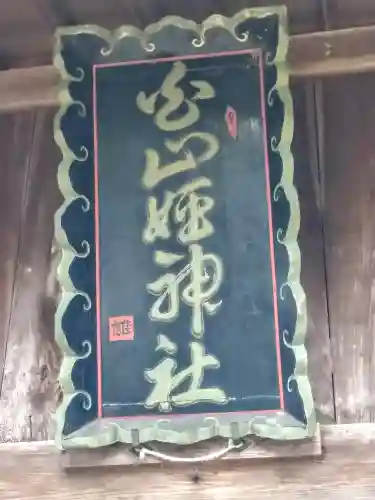 白山姫神社